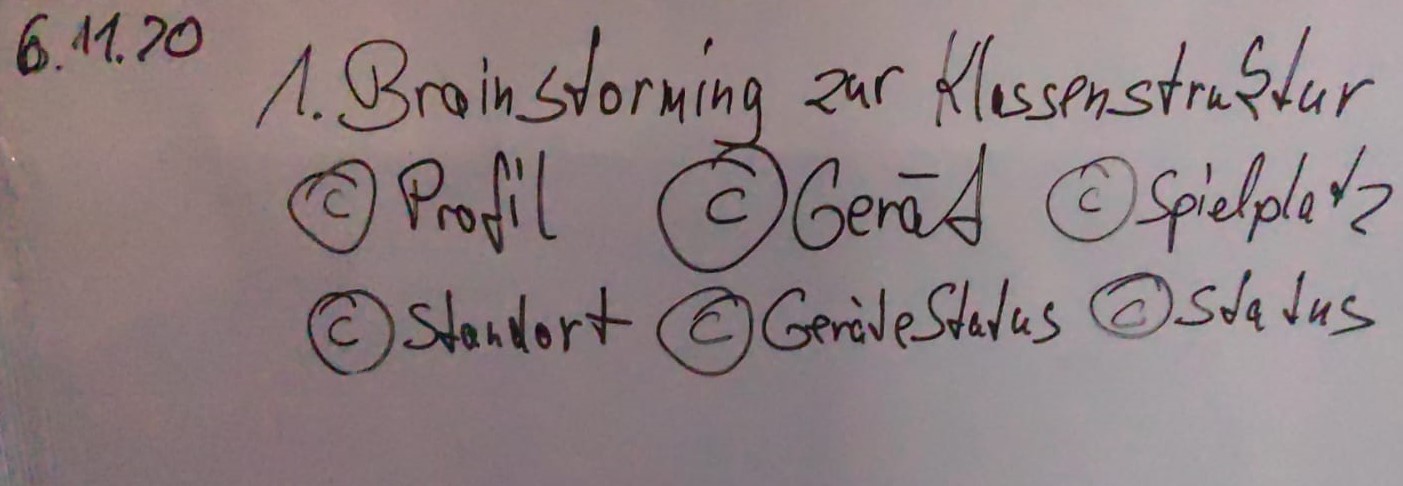 6.11.20
1. Brainstorming zur Klassenstruktur
© Profil © Gerät © Spielplatz
© Standort © GeräteStatus © Status